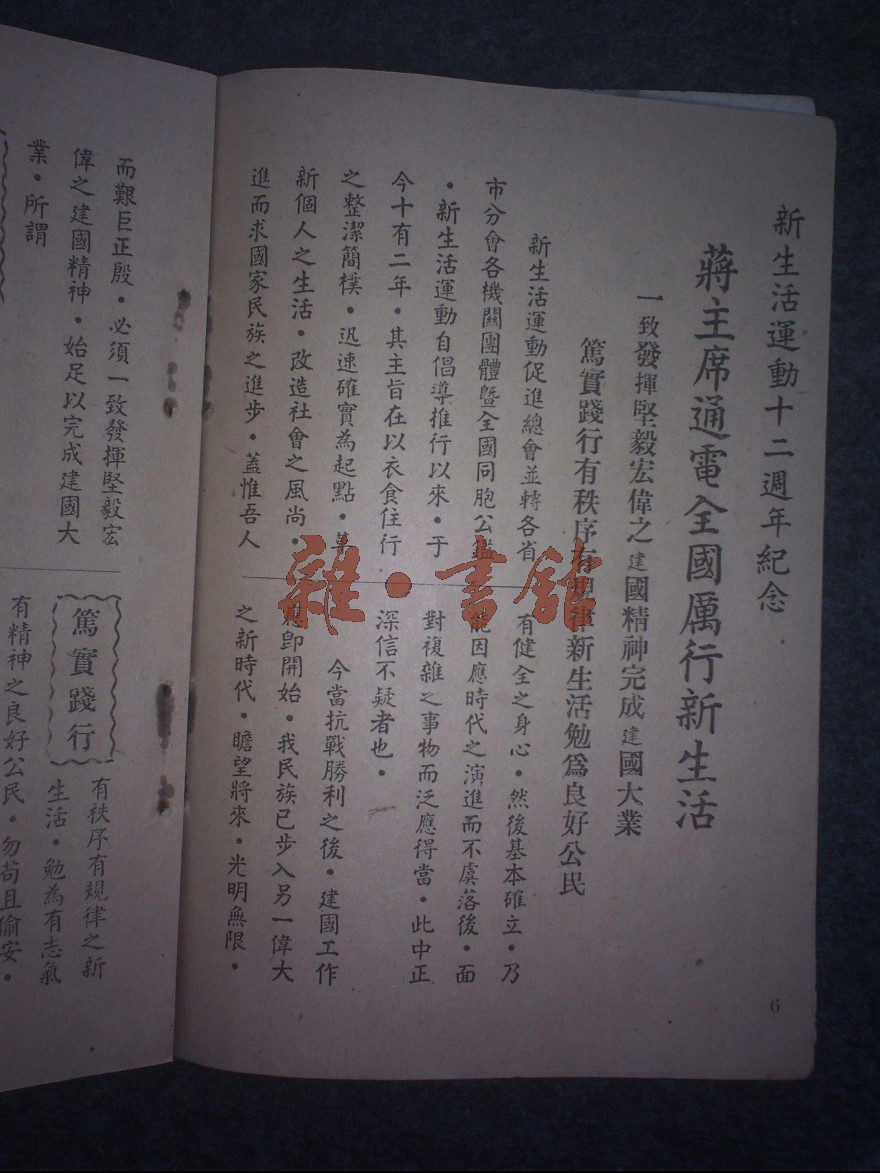 新生活運動十二週年紀念
蔣主席通電全國厲行新生活
一致發揮堅毅宏偉之建國精神完成建國大業
篤實踐行有秩序有規律新生活勉爲良好公民
新生活運動促進總會並轉各省
市分會各機關團體曁全國同胞公鑑
・新生活運動自倡導推行以來・于
今十有二年・其主旨在以衣食住行
之整潔簡樸・迅速確實為起點・革
新個人之生活・改造社會之風尚・
進而求國家民族之進步・蓋惟吾人
有健全之身心・然後基本確立・乃
能因應時代之演進而不虞落後・面
對複雜之事物而泛應得當・此中正
深信不疑者也・
今當抗戰勝利之後・建國工作
應卽開始・我民族已步入另一偉大
之新時代・瞻望將來・光明無限・
6
而艱巨正殷・必須一致發揮堅毅宏
偉之建國精神・始足以完成建國大
業・所謂
篤實踐行
有秩序有規律之新
生活・勉為有志氣
有精神之良好公民・勿苟且偷安・
雜・書館